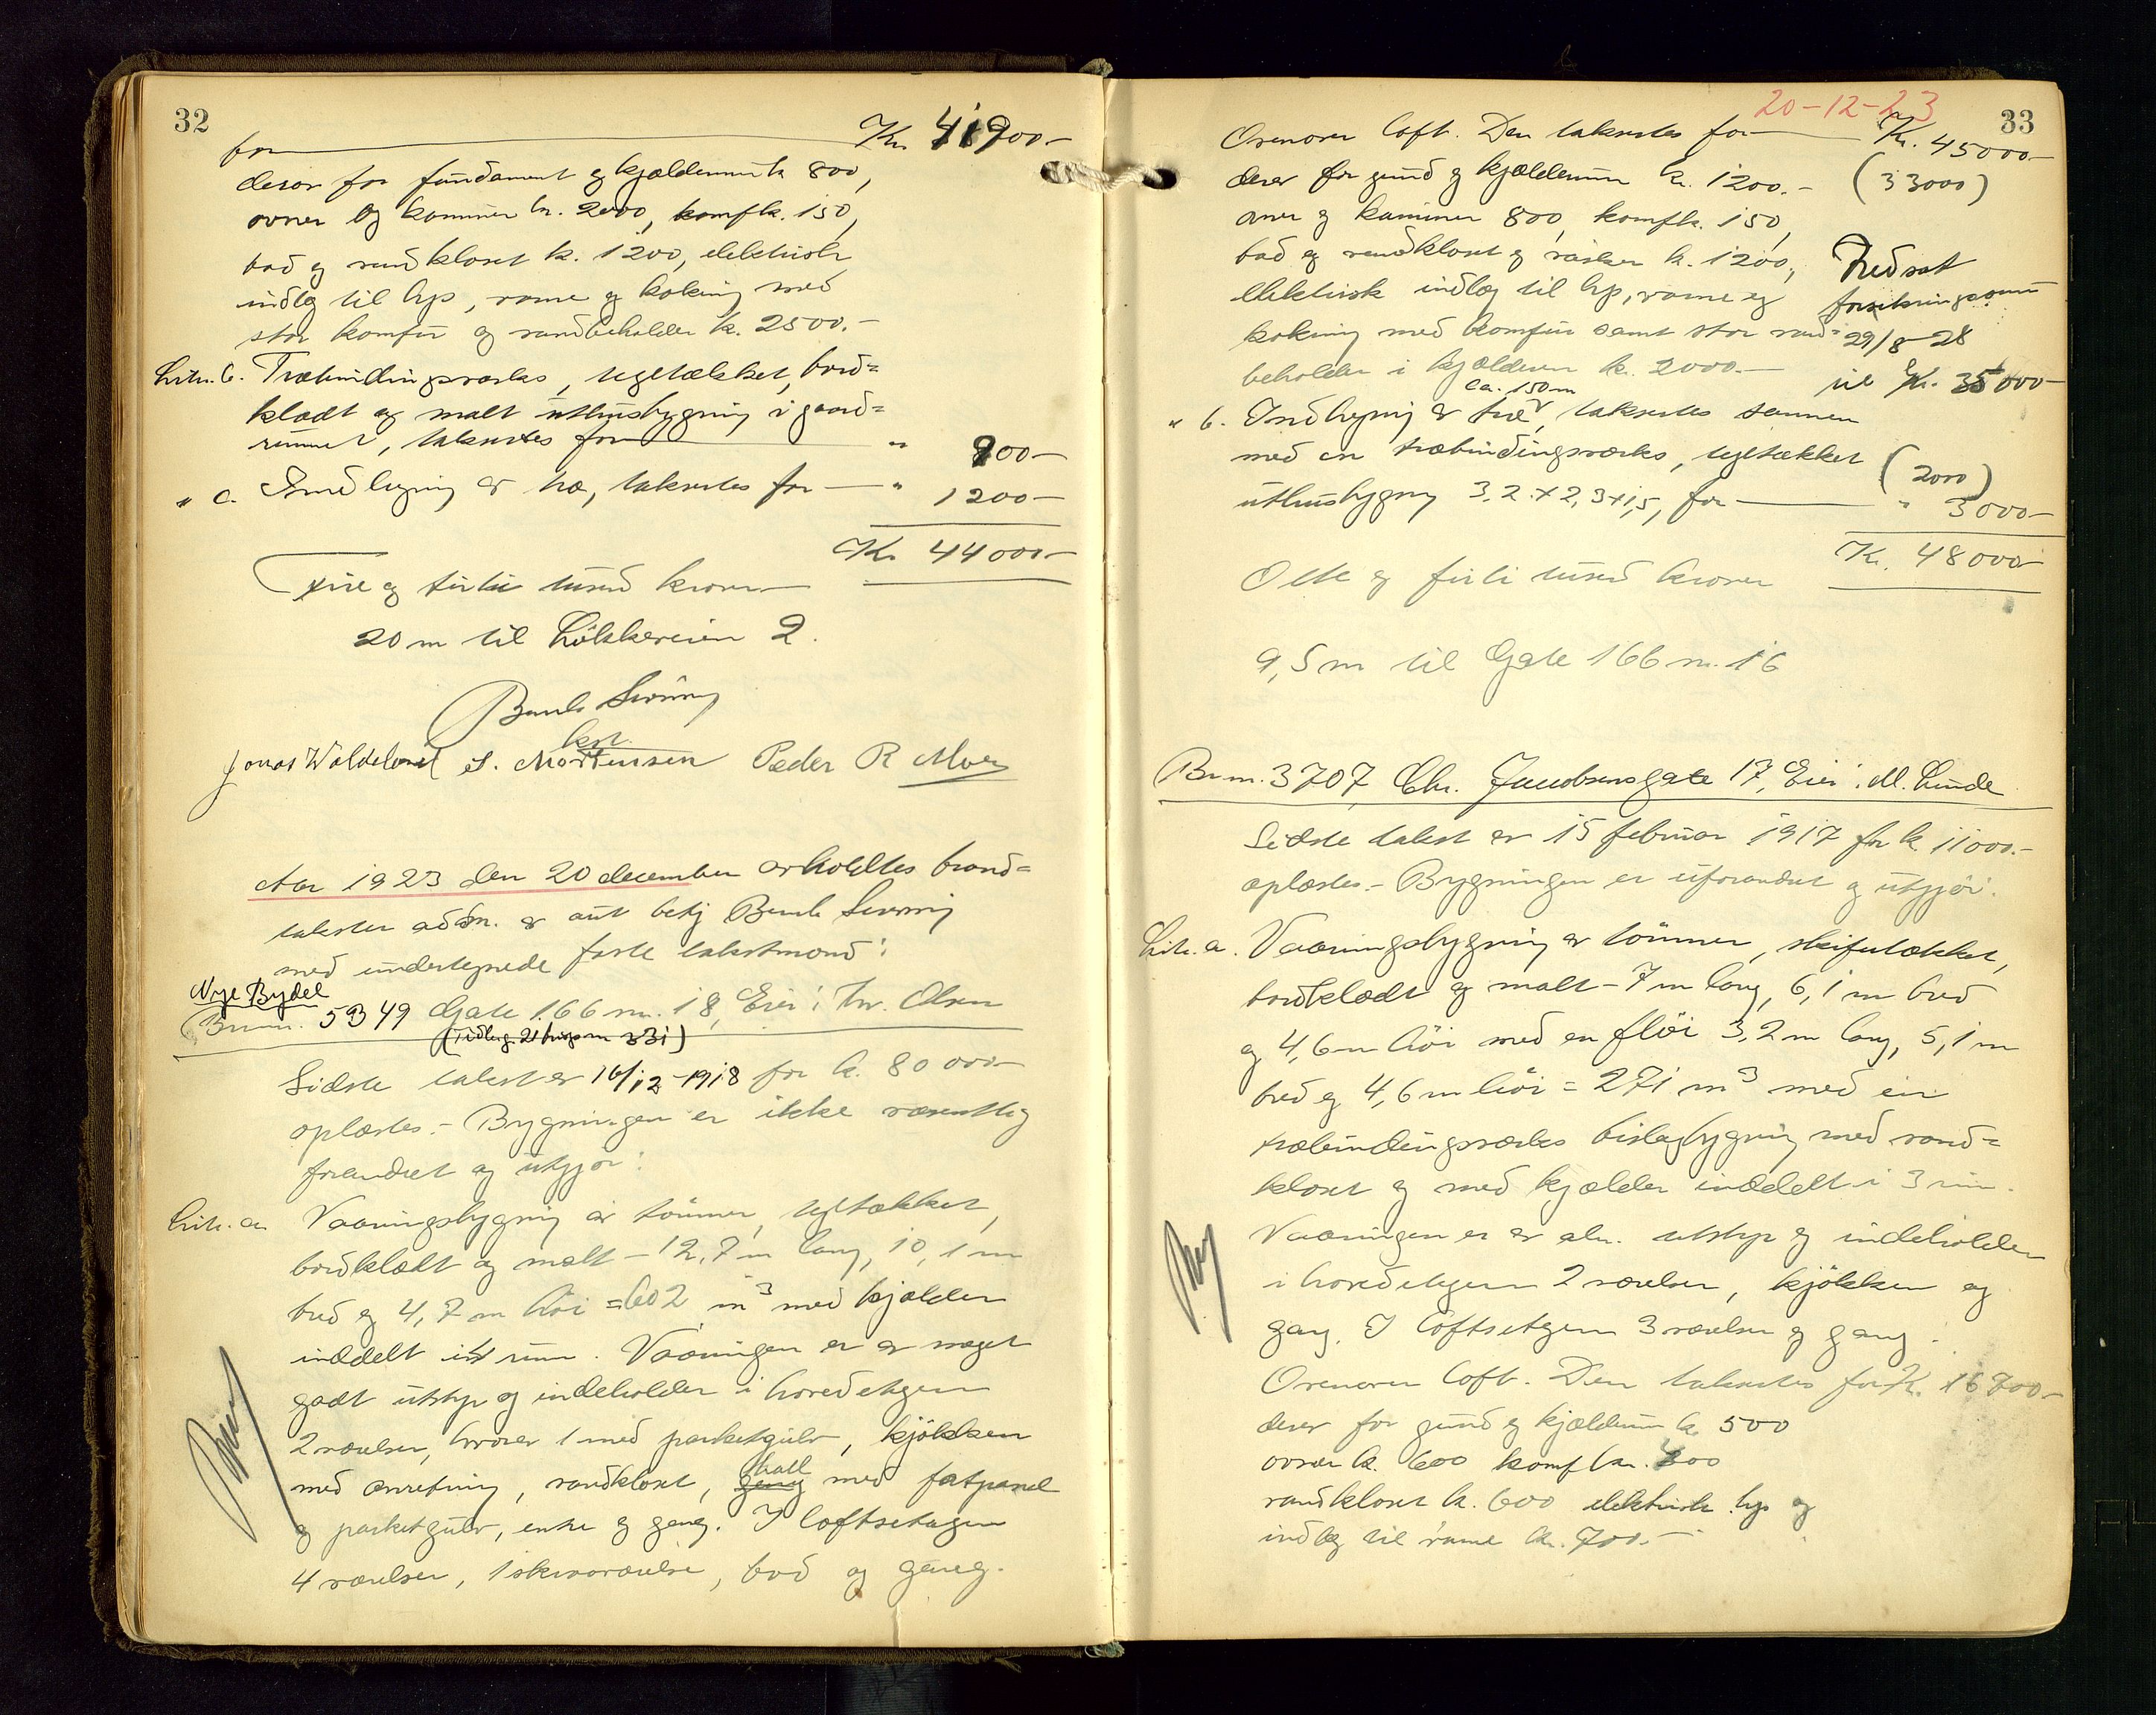 32
for Kr. 41900-
derav for fundament og kjældermur k. 800,
ovner og kaminer kr. 2000, komf k. 150,
bad og vandkloset k. 1200, elektrisk
indlæg til lys, varme og koking med
stor komfur og vandbeholder k. 2500.-
Litr. b. Træbindingsverks, tegltækket, bord=
klædt og malt uthusbygning i gaards=
rummet, takseres for " 900-
" c. Indhegning av træ, takseres for " 1200-
Kr. 44000-
Fire og firti tusind kroner
20 m til Løkkeveien 2.
Bernh Svenning
kst.
Jonas Waldeland S. Mortensen Peder R Moe
Aar 1923 den 20 december avholdtes brand=
takster adm. av aut besty Bernh Svenning
med undertegnede faste takstmænd:
Nye Bydel
Br.nr. 5349 Gate 166 nr. 18, Eier: Tw. Olsen
Sidste takst er 16/12-1918 for k. 80000-
oplæstes.- Bygningen er ikke væsentlig
forandret og utgjør:
Litr. a. Vaaningsbygning av tømmer, tegltækket,
bordklædt og malt - 12,7 m lang, 10,1 m
bred og 4,7 m høi = 602 m³ med kjælder
inddelt i 4 rum. Vaaningen er av meget
godt utstyr og indeholder i hovedetagen
2 værelser, hvorav 1 med parketgulv, kjøkken
med anretning, vandkloset, hall med fatpanel
og parketgulv, entre og gang. I loftsetagen
4 værelser, 1 skraaværelse, bad og gang.
20-12-23
33
Ovenover loft. Den takseres for Kr. 45000-
derav for grund og kjældermur k. 1200.- (33000)
ovner og kaminer 800, komfk. 150,
bad og vandkloset og vasker k. 1200,
Nedsat
elektrisk indlæg til lys, varme og
forsikringssum
koking med komfur samt stor vand=
29/8-28
beholder i kjælderen k. 2000.-
til Kr. 35000-
ca. 150 m
" b. Indhegning av træ, takseres sammen
med en træbindingsverks, tegltækket
(2000)
uthusbygning 3,2 x 2,3 x 1,5, for " 3000-
Kr. 48000-
Otte og firti tusind kroner
9,5 m til Gate 166 nr. 16
Br.nr. 3707, Chr. Jacobsensgate 17, Eier: M. Lunde
Sidste takst er 15 februar 1917 for k. 11000.-
oplæstes.- Bygningen er uforandret og utgjør:
Litr. a. Vaaningsbygning av tømmer, skifertækket,
bordklædt og malt - 7 m lang, 6,1 m bred
og 4,6 m høi med en fløi 3,2 m lang, 5,1 m
bred og 4,6 m høi = 271 m³ med en
træbindingsverks bislagbygning med vand=
kloset og med kjælder inddelt i 3 rum.
Vaaningen er av alm. utstyr og indeholder
i hovedetagen 2 værelser, kjøkken og
gang. I loftsetagen 3 værelser og gang.
Ovenover loft. Den takseres for Kr. 16800-
derav for grund og kjælderm k. 500
ovner k. 600 komf kr. 300
vandkloset k. 600 elektrisk lys og
indlæg til varme kr. 700.-